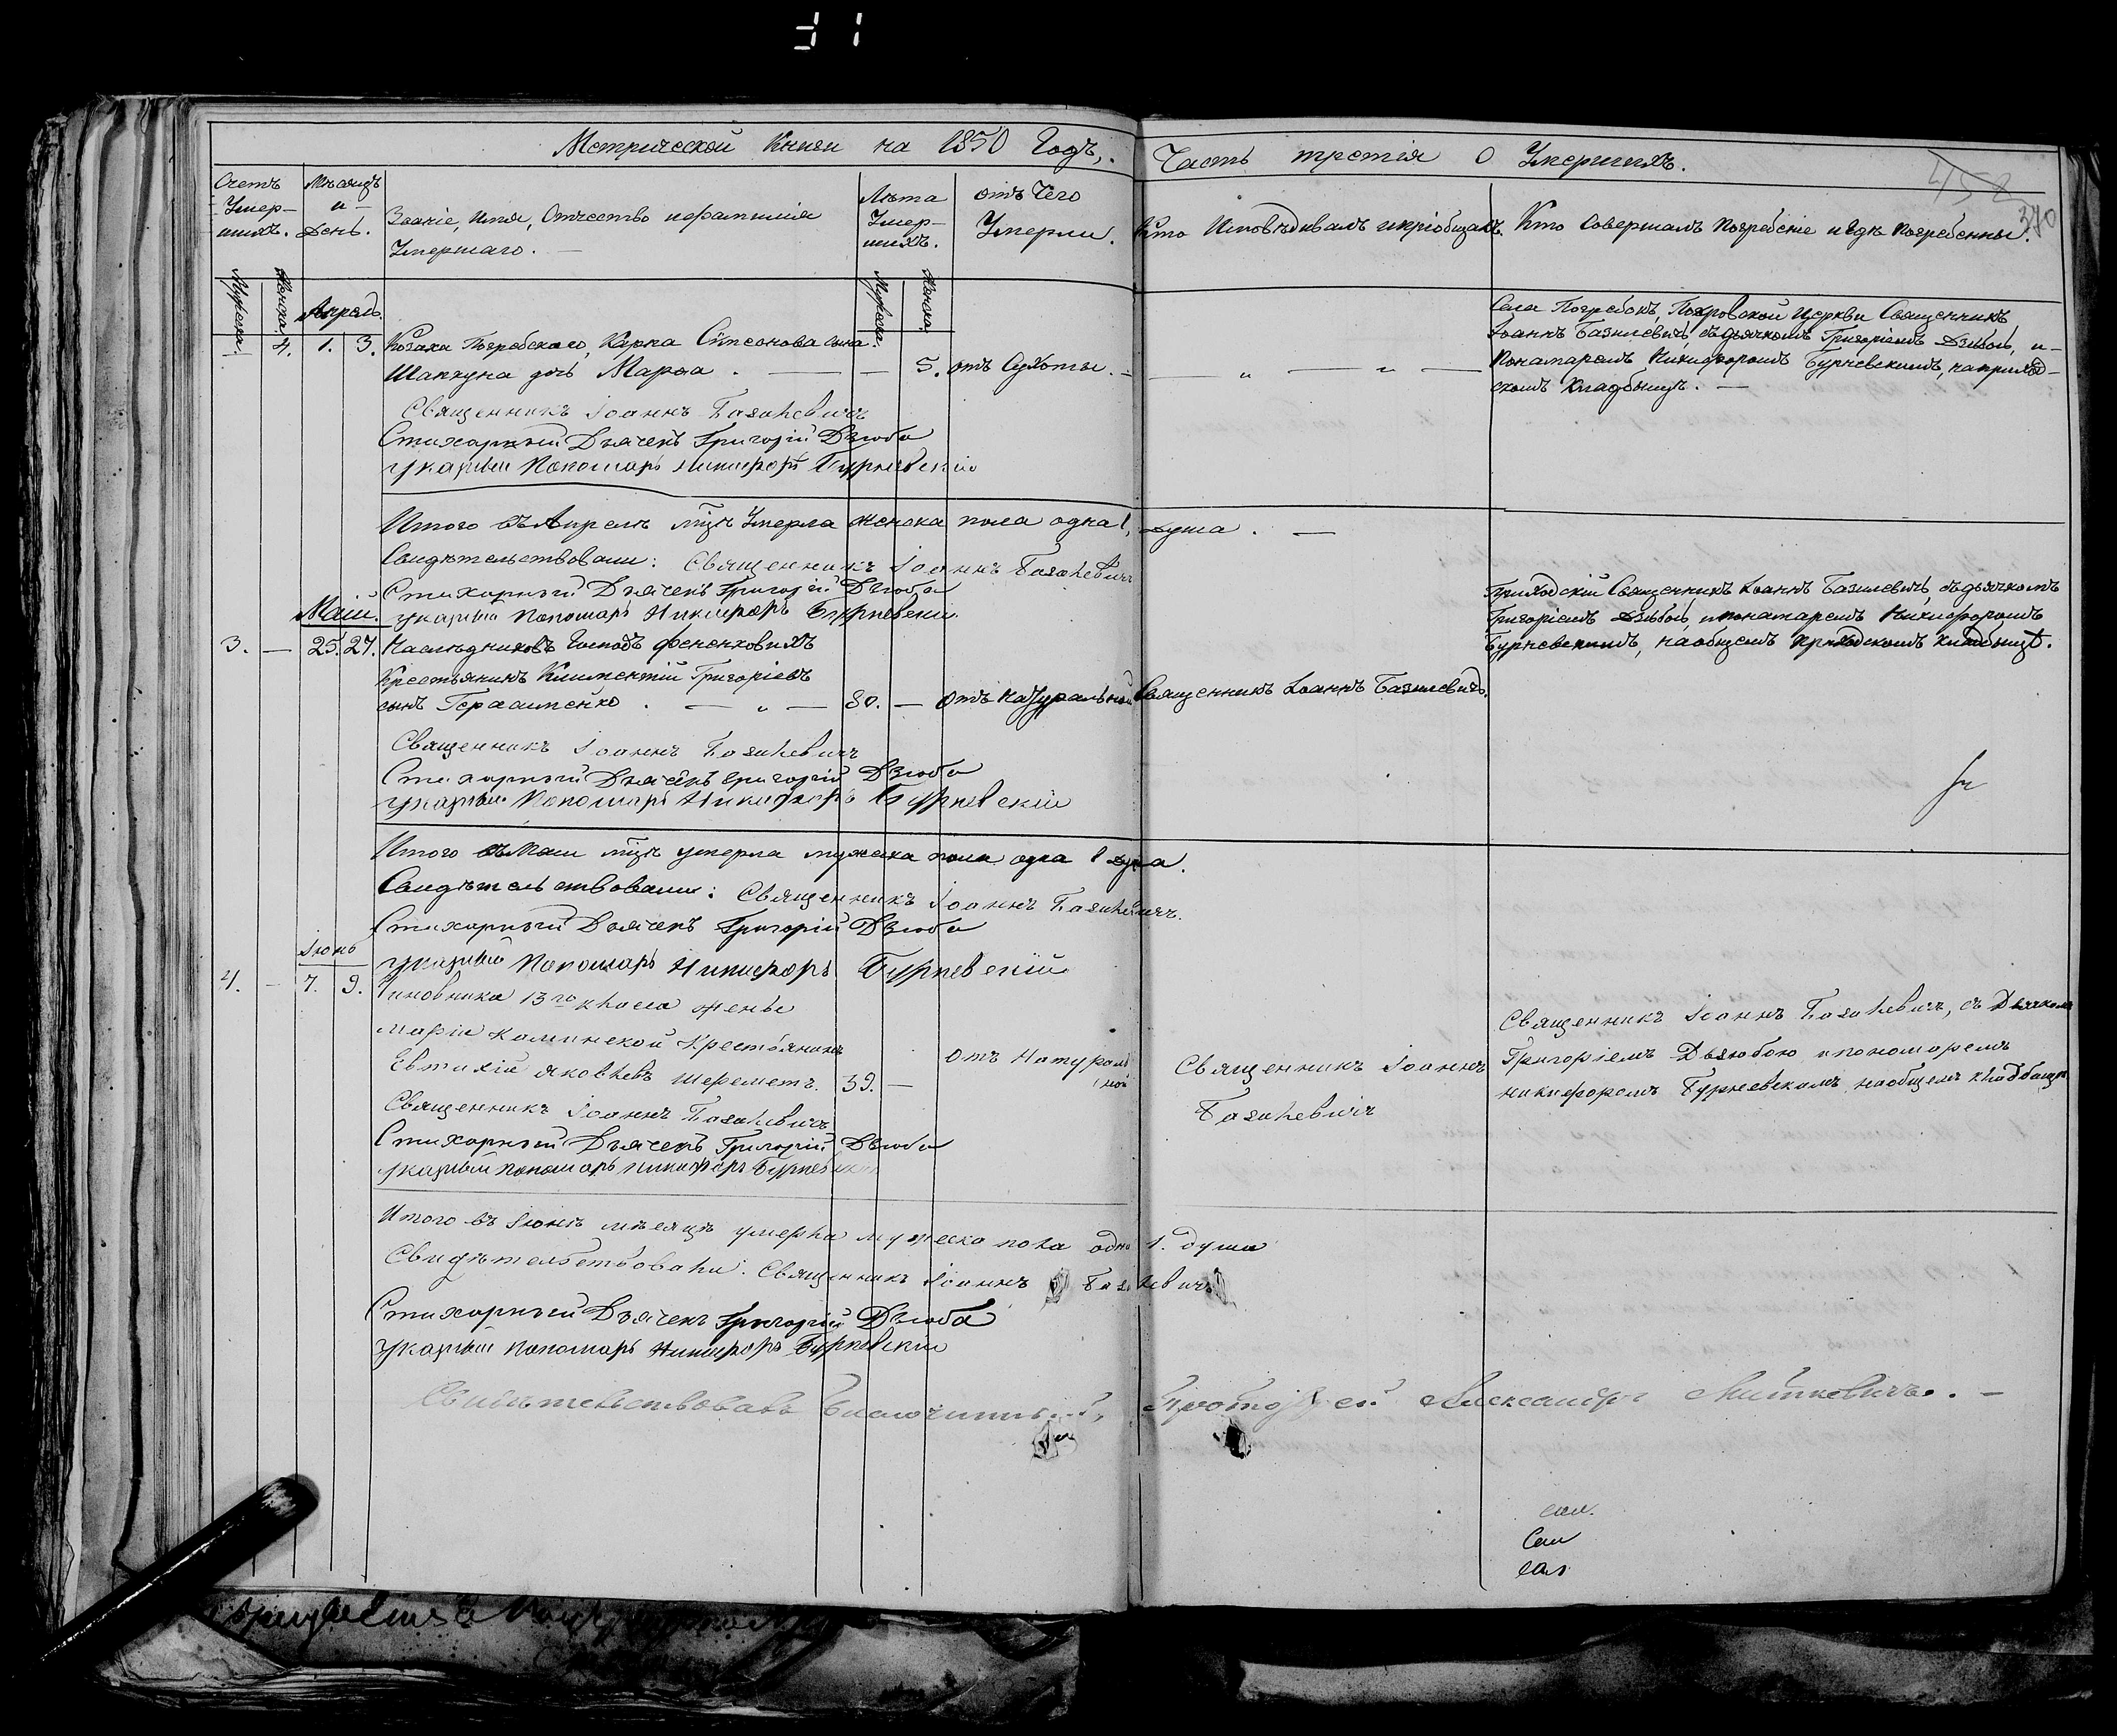 Метрической Книги на 1850 Годъ,
Часть третія о Умершихъ.
458
370
Счетъ Умер-
шихъ.
Мѣсяцъ
и
День.
Званіе, Имя, Отчество и фамилія
Умершаго.
Лѣта
Умер-
шихъ.
отъ Чего
Умерли.
Кто Исповѣдывалъ и пріобщалъ.
Кто Совершалъ Погребеніе и Гдѣ Погребенны.
Мужеска.
Женска.
Мужеска.
Женска.
Апрель.
4. 1. 3. Козака Погребского, Карпа Сѵмеонова сына
Шапкуна дочь Марѳа. — — 5. отъ Сухоты.
Села Погребокъ, Покровской Церкви Священникъ
Іоаннъ Базилевичъ, съ дьячкомъ Григоріемъ Дзюбою, и
Понамаремъ Никифоромъ Бурневскимъ, на приход-
скомъ Кладбищѣ. —
Священникъ Іоаннъ Базилевичъ
Стихарный Дьячекъ Григорій Дзюба
указный Пономарь Никифоръ Бурневскій
Итого въ Апрелѣ мцѣ Умерла женска пола одна 1, душа. —
Свидѣтельствовали: Священникъ Іоаннъ Базилевичъ
Стихарный Дьячекъ Григорій Дзюба
указный Пономарь Никифоръ Бурневскій
Май.
3. — 25. 27. Наслѣдниковъ Господъ Фененковыхъ
Крестьянинъ Климентій Григоріевъ
сынъ Герасименко. — „ — 80. — отъ Натуральной
Священникъ Іоаннъ Базилевичъ.
Приходскій Священникъ Іоаннъ Базилевичъ, съ дьячкомъ
Григоріемъ Дзюбою, и понамаремъ Никифоромъ
Бурневскимъ, на общемъ приходскомъ кладбищѣ.
Священникъ Іоаннъ Базилевичъ
Стихарный Дьячекъ Григорій Дзюба
указный Пономарь Никифоръ Бурневскій
Итого въ Маи мцѣ умерла мужеска пола одна 1 душа.
Свидѣтельствовали: Священникъ Іоаннъ Базилевичъ.
Стихарный Дьячекъ Григорій Дзюба
указный Пономарь Никифоръ Бурневскій
Іюнь
4. — 7. 9. Чиновника 13го класса жены
Маріи Калинской Крестьянинъ
Евтихій Яковлевъ Шереметъ. 39. —
отъ Натураль
ной
Священникъ Іоаннъ
Базилевичъ
Священникъ Іоаннъ Базилевичъ, съ Дьячкомъ
Григоріемъ Дзюбою и пономоремъ
никифоромъ Бурневскимъ на общемъ кладбищѣ
Священникъ Іоаннъ Базилевичъ
Стихарный Дьячекъ Григорій Дзюба
указный пономарь Никифоръ Бурневскій
Итого въ Іюнѣ мѣсяцѣ умерла мужеска пола одна 1. душа
Свидѣтельствовали: Священникъ Іоаннъ Базилевичъ
Стихарный Дьячекъ Григорій Дзюба
указный Пономарь Никифоръ Бурневскій
Свидѣтельствовалъ Благочинный, Протоіерей Александръ Миткевичъ. —